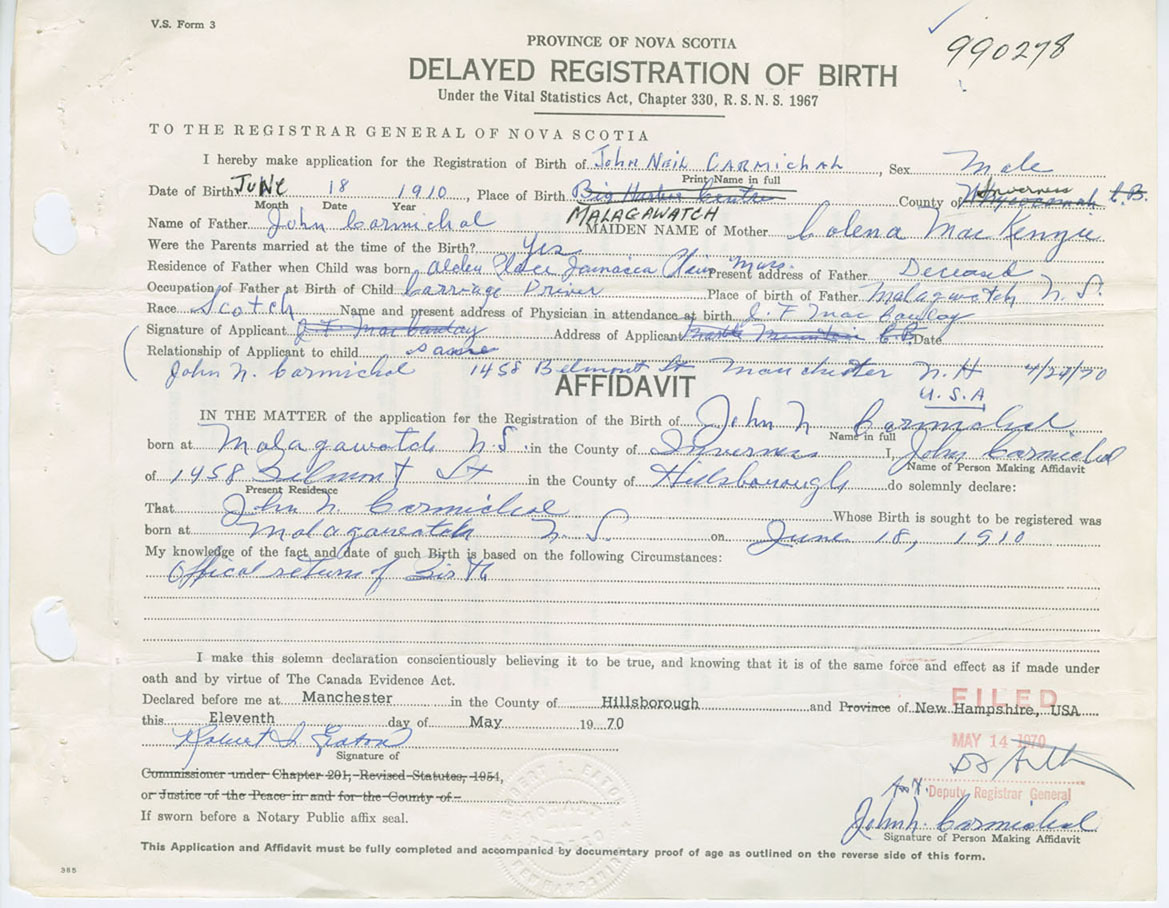 V.S. Form 3
990278
PROVINCE OF NOVA SCOTIA
DELAYED REGISTRATION OF BIRTH
Under the Vital Statistics Act, Chapter 330, R.S.N.S. 1967
TO THE REGISTRAR GENERAL OF NOVA SCOTIA
I hereby make application for the Registration of Birth of John Neil CARMICHAL, Sex Male
Print Name in full
Date of Birth JUNE 18 1910, Place of Birth Big Harbor Centre County of Inverness C.B.
Month Date Year
MALAGAWATCH
Name of Father John Carmichal MAIDEN NAME of Mother Colena MacKenzie
Were the Parents married at the time of the Birth? Yes
Residence of Father when Child was born Alden Place Jamaica Plain Mass. Present address of Father Deceased
Occupation of Father at Birth of Child Carriage Driver Place of birth of Father Malagwatch N.S.
Race Scotch Name and present address of Physician in attendance at birth J. F. MacAulay
Signature of Applicant Address of Applicant Date
Relationship of Applicant to child same
John N. Carmichal 1458 Belmont St Manchester N.H 4/27/70
U.S.A
AFFIDAVIT
IN THE MATTER of the application for the Registration of the Birth of John N Carmichal
Name in full
born at Malagawatch N.S. in the County of Inverness I, John Carmichal
Name of Person Making Affidavit
of 1458 Belmont St in the County of Hillsborough do solemnly declare:
Present Residence
That John N. Carmichal Whose Birth is sought to be registered was
born at Malagawatch N.S. on June 18, 1910
My knowledge of the fact and date of such Birth is based on the following Circumstances:
Offical return of Birth
I make this solemn declaration conscientiously believing it to be true, and knowing that it is of the same force and effect as if made under
oath and by virtue of The Canada Evidence Act.
Declared before me at Manchester in the County of Hillsborough and Province of New Hampshire, USA
FILED
this Eleventh day of May 1970
MAY 14 1970
Robert I. Eaton
Signature of
Commissioner under Chapter 201, Revised Statutes, 1954,
or Justice of the Peace in and for the County of
Deputy Registrar General
If sworn before a Notary Public affix seal.
John N. Carmichal
Signature of Person Making Affidavit
This Application and Affidavit must be fully completed and accompanied by documentary proof of age as outlined on the reverse side of this form.
385